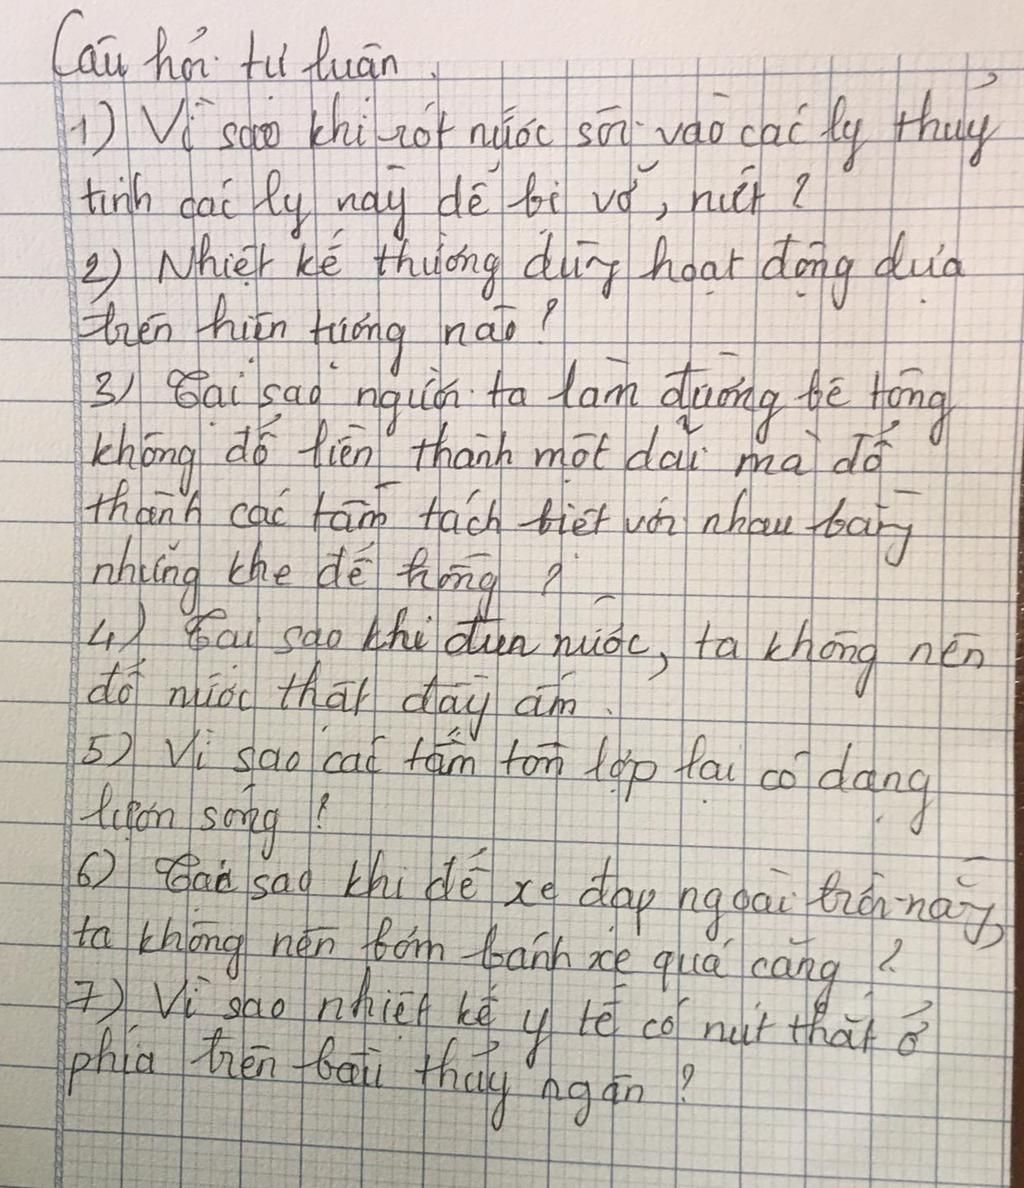 Câu hỏi tự luận.
1) Vì sao khi rót nước sôi vào các ly thuỷ
tinh các ly này dễ bị vỡ, nứt?
2) Nhiệt kế thường dùng hoạt động dựa
trên hiện tượng nào?
3) Tại sao người ta làm đường bê tông
không đổ liền thành một dải mà đổ
thành các tấm tách biệt với nhau bằng
những khe để trống?
4) Tại sao khi đun nước, ta không nên
đổ nước thật đầy ấm.
5) Vì sao các tấm tôn lợp lại có dạng
lượn sóng?
6) Tại sao khi để xe đạp ngoài trời nắng,
ta không nên bơm bánh xe quá căng?
7) Vì sao nhiệt kế y tế có nút thắt ở
phía trên bầu thủy ngân?